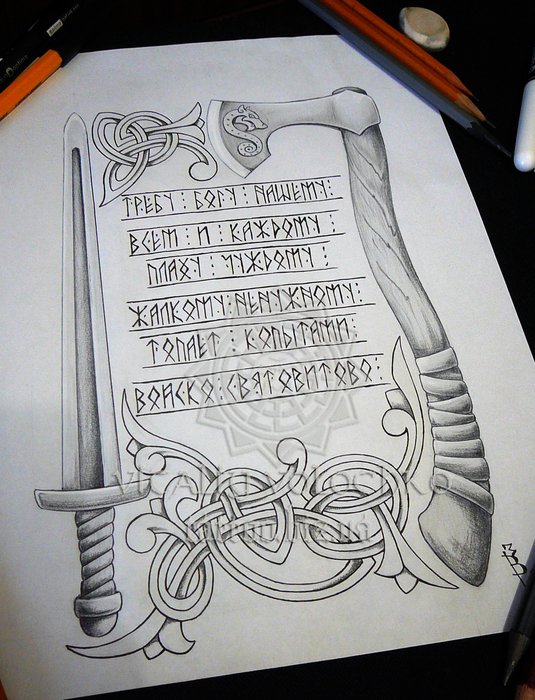 ТРЕБУ⋮БОГУ⋮НАШЕМУ⋮
ВСЕМ⋮И⋮КАЖДОМУ⋮
ПЛАХУ⋮ЧУЖДОМУ⋮
ЖАЛКОМУ⋮НЕНУЖНОМУ⋮
ТОПАЕТ⋮КОПЫТАМИ⋮
ВОЙСКО⋮СВЯТОВИТОВО⋮